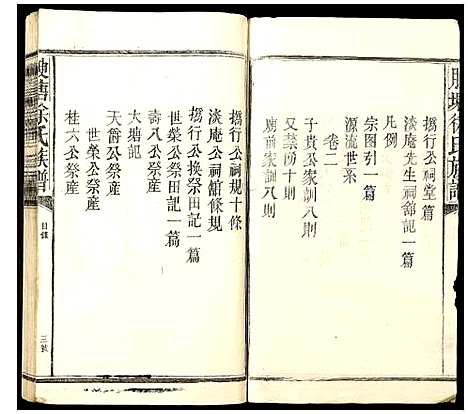 徐氏族譜
撝行公祠堂篇
淡庵先生祠舘記一篇
凡例
宗圖引一篇
源流世系
卷二
子貴公家訓八則
又禁約十則
廟前家訓八則
撝行公祠規十條
淡庵公祠舘條規
撝行公換祭田記一篇
世榮公祭田記一篇
壽八公祭産
大塘記
天爵公祭産
世榮公祭産
桂六公祭産
塘徐氏族譜
目錄
三